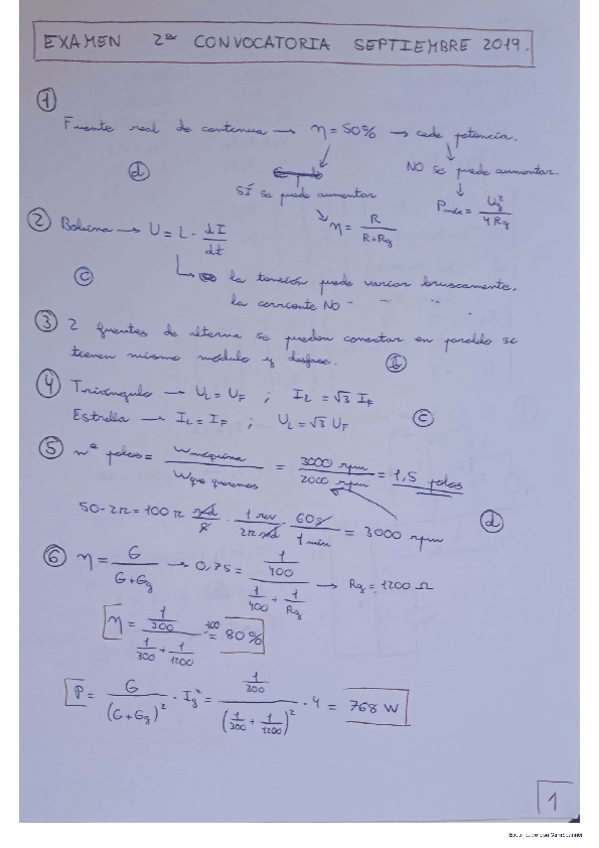 EXAMEN 2ª CONVOCATORIA SEPTIEMBRE 2019.
①
Fuente real de continua → η = 50% → cede potencia.
ⓓ
NO se puede aumentar.
SÍ se puede aumentar
Pmáx = Ug² / 4 Rg
η = R / R+Rg
② Bobina → U = L · dI/dt
ⓒ
la tensión puede variar bruscamente.
la corriente NO " " "
③ 2 fuentes de alterna se pueden conectar en paralelo si
tienen mismo módulo y desfase. ⓑ
④ Triángulo → UL = UF ; IL = √3 IF
Estrella → IL = IF ; UL = √3 UF ⓒ
⑤ nº polos = Wmáquina / Wque queremos = 3000 rpm / 2000 rpm = 1,5 polos
50·2π = 100 π rad/s · 1 rev / 2π rad · 60 s / 1 min = 3000 rpm ⓓ
⑥ η = G / G+Gg → 0,75 = 1/400 / 1/400 + 1/Rg → Rg = 1200 Ω
η = 1/300 / 1/300 + 1/1200 ·100 = 80%
P = G / (G+Gg)² · Ig² = 1/300 / (1/300 + 1/1200)² · 4 = 768 W
1